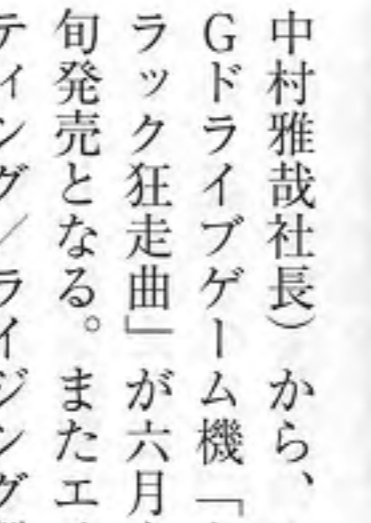 中村雅哉社長）から、
Gドライブゲーム機「
ラック狂走曲」が六月
旬発売となる。またエ
ティング／ライジング